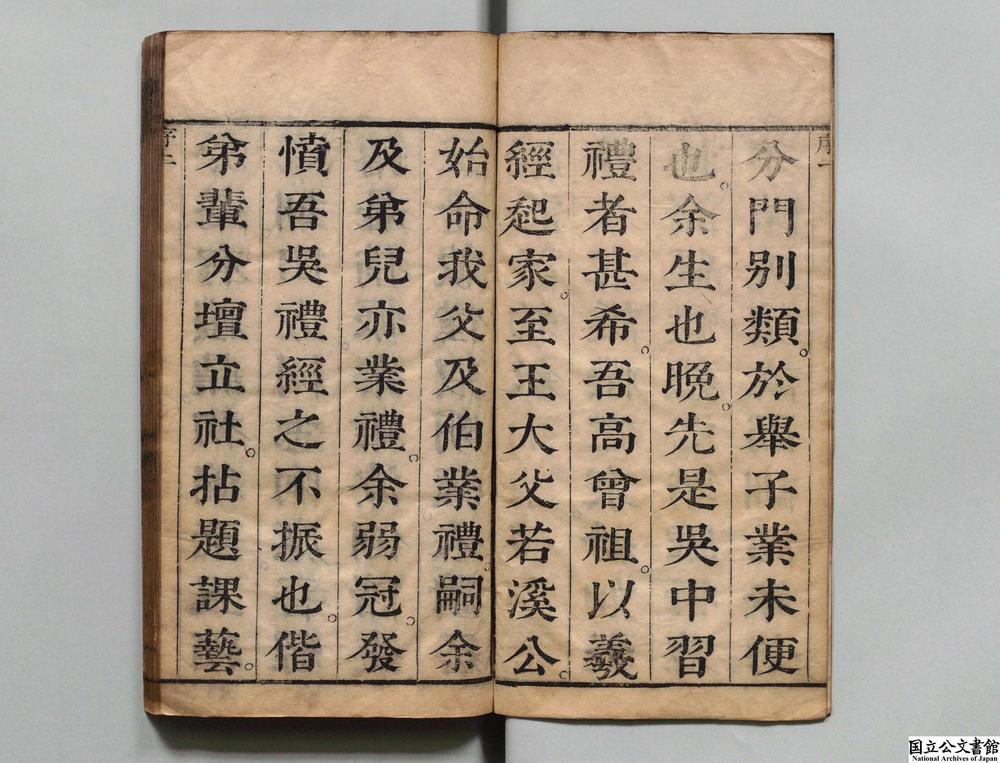 序一
分門別類。於舉子業未便
也。余生也晚。先是吳中習
禮者甚希。吾高曾祖。以羲
經起家。至王大父若溪公。
始命我父及伯業禮。嗣余
及弟兒亦業禮。余弱冠。發
憤吾吳禮經之不振也。偕
弟輩分壇立社。拈題課藝。
序二
国立公文書館
National Archives of Japan